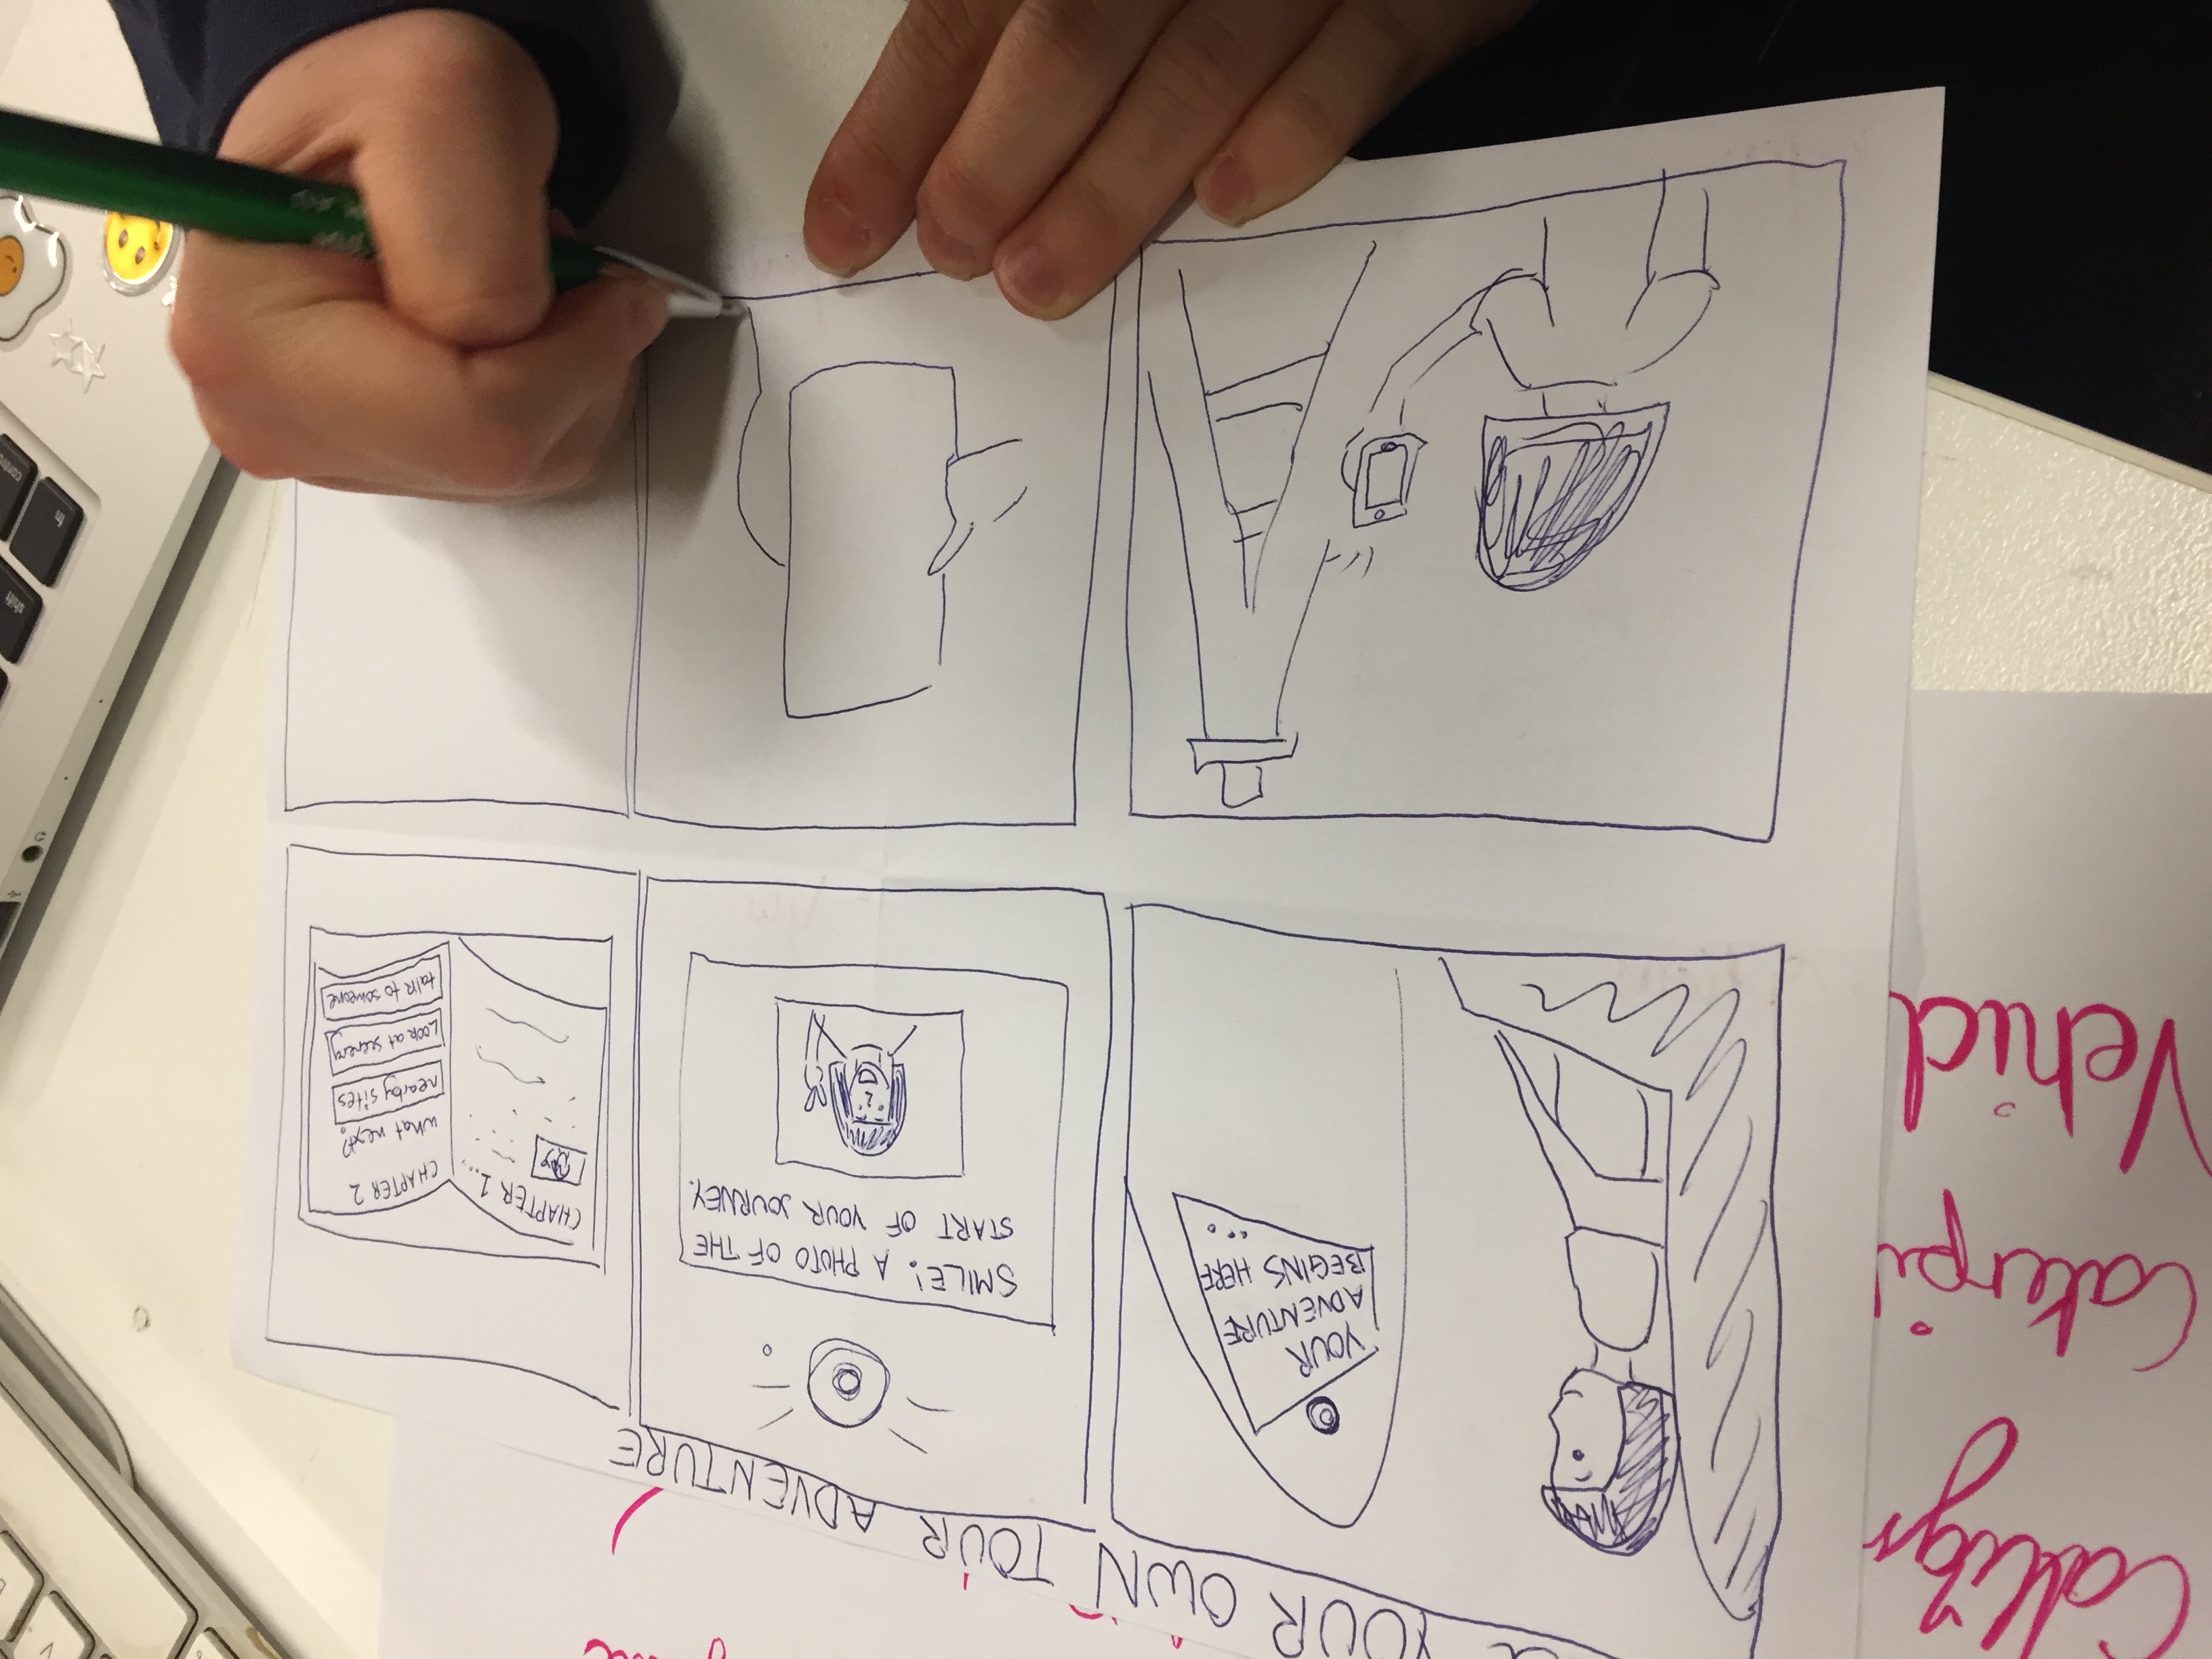 YOUR OWN TOUR ADVENTURE
YOUR
ADVENTURE
BEGINS HERE
...
SMILE! A PHOTO OF THE
START OF YOUR JOURNEY.
CHAPTER 1...
CHAPTER 2
what next?
nearby sites
Look at scenery
talk to someone
shift
fn
control
V